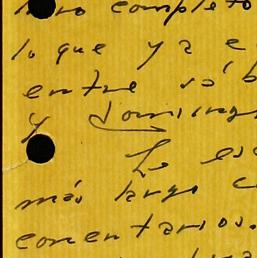 completo
lo que ya e
entre sá b
y Domingo
Le es
más largo c
comentarios.